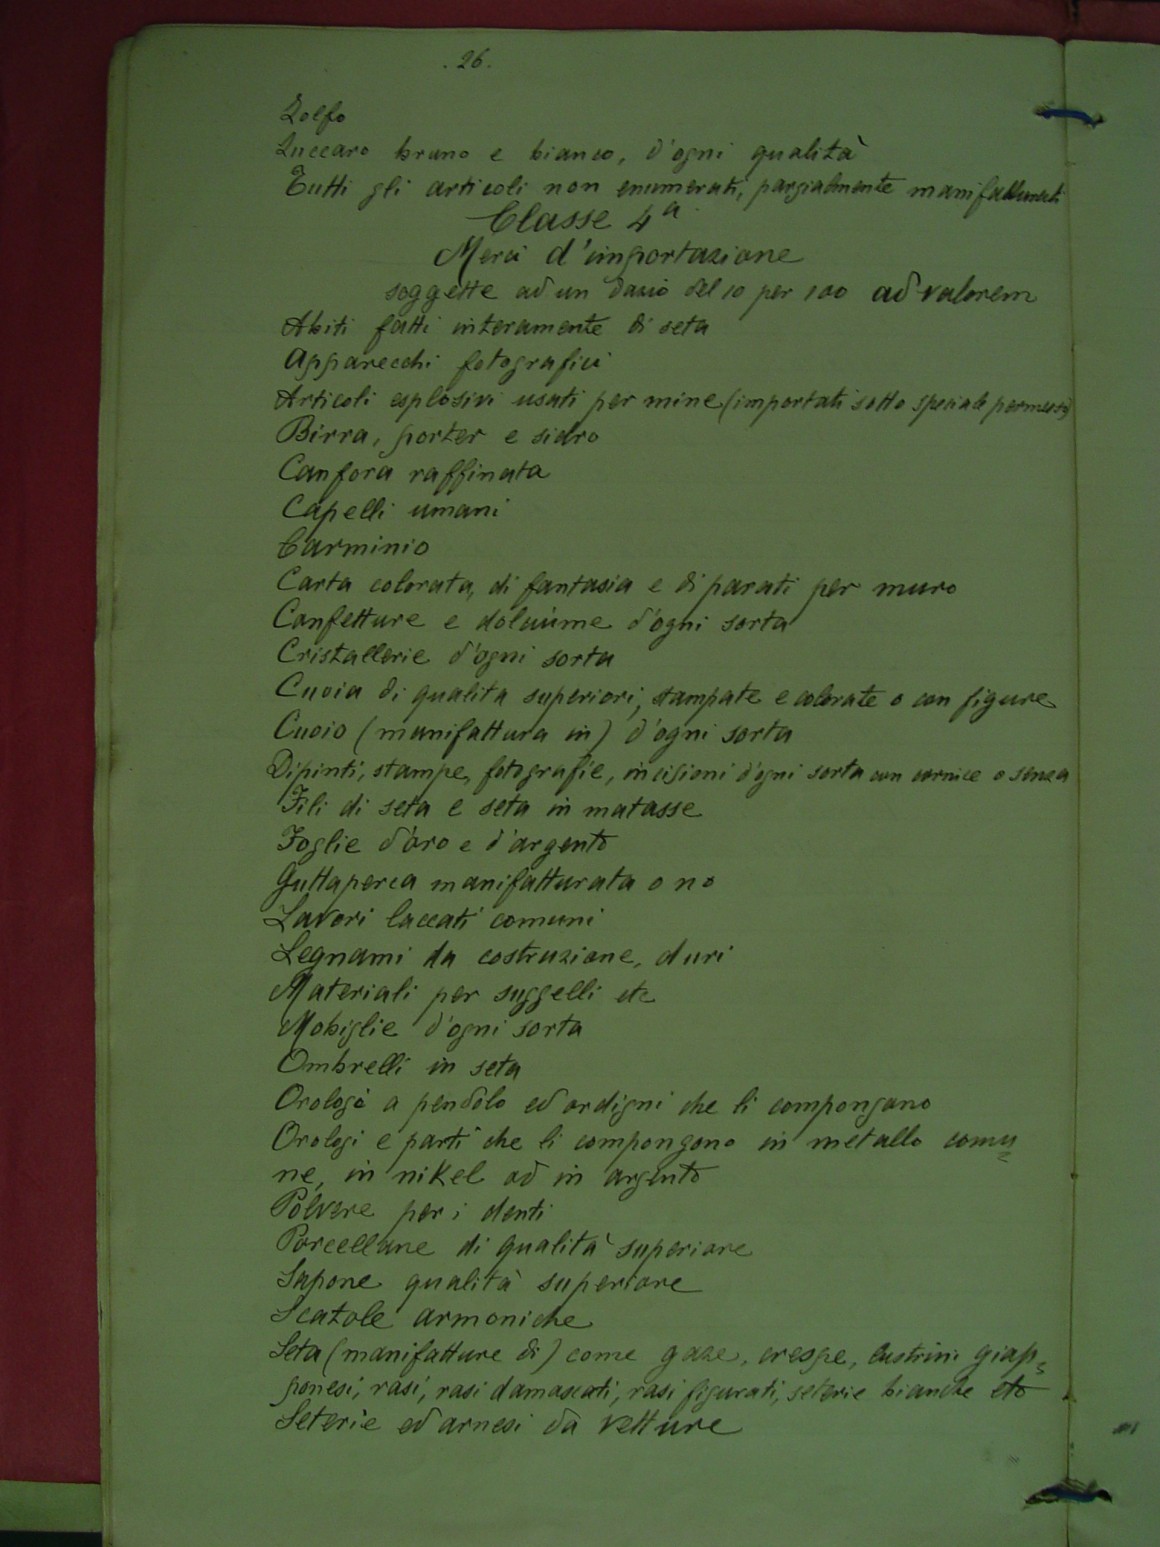 . 26.
Zolfo
Zuccaro bruno e bianco, d'ogni qualità
Tutti gli articoli non enumerati, parzialmente manifatturati
Classe 4ª
Merci d'importazione
soggette ad un dazio del 10 per 100 ad valorem
Abiti fatti interamente di seta
Apparecchi fotografici
Articoli esplosivi usati per mine (importati sotto speciale permesso)
Birra, porter e sidro
Canfora raffinata
Capelli umani
Carminio
Carta colorata, di fantasia e di parati per muro
Confetture e dolciume d'ogni sorta
Cristallerie d'ogni sorta
Cuoia di qualita superiori, stampate e colorate o con figure
Cuoio (manifattura in) d'ogni sorta
Dipinti, stampe, fotografie, incisioni d'ogni sorta con cornice o senza
Fili di seta e seta in matasse
Foglie d'oro e d'argento
Guttaperca manifatturata o no
Lavori laccati comuni
Legnami da costruzione, duri
Materiali per suggelli etc
Mobiglie d'ogni sorta
Ombrelli in seta
Orologi a pendolo ed ordigni che li compongano
Orologi e parti che li compongono in metallo comu=
ne, in nikel ad in argento
Polvere per i denti
Porcellane di qualità superiore
Sapone qualità superiore
Scatole armoniche
Seta (manifatture di) come gaze, crespe, lustrini giap=
ponesi, rasi, rasi damascati, rasi figurati, seterie bianche etc
Seterie ed arnesi da vetture